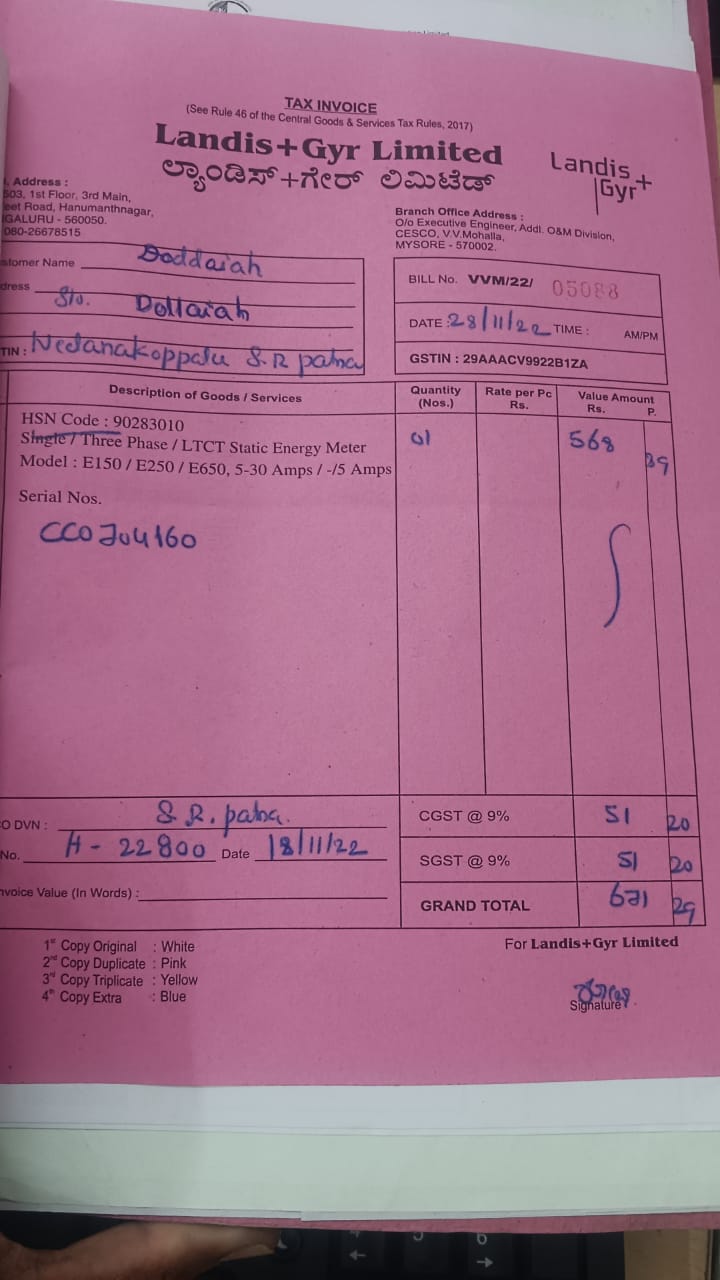 TAX INVOICE
(See Rule 46 of the Central Goods & Services Tax Rules, 2017)
Landis+Gyr Limited
ಲ್ಯಾಂಡಿಸ್+ಗೇರ್ ಲಿಮಿಟೆಡ್
Landis+
Gyr
. Address :
503, 1st Floor, 3rd Main,
eet Road, Hanumanthnagar,
GALURU - 560050.
080-26678515
Branch Office Address :
O/o Executive Engineer, Addl. O&M Division,
CESCO, V.V.Mohalla,
MYSORE - 570002.
stomer Name Doddaiah
dress S/o. Dollaiah
TIN : Nedanakoppalu S.R patna
BILL No. VVM/22/ 05088
DATE : 28/11/22 TIME : AM/PM
GSTIN : 29AAACV9922B1ZA
Description of Goods / Services Quantity (Nos.) Rate per Pc Rs. Value Amount Rs. P.
HSN Code : 90283010
Single / Three Phase / LTCT Static Energy Meter 01 568 89
Model : E150 / E250 / E650, 5-30 Amps / -/5 Amps
Serial Nos.
CC0704160
O DVN : S.R. patna.
No. H - 22800 Date 18/11/22
nvoice Value (In Words) :
CGST @ 9% 51 20
SGST @ 9% 51 20
GRAND TOTAL 671 29
1st Copy Original : White
2nd Copy Duplicate : Pink
3rd Copy Triplicate : Yellow
4th Copy Extra : Blue
For Landis+Gyr Limited
Signature